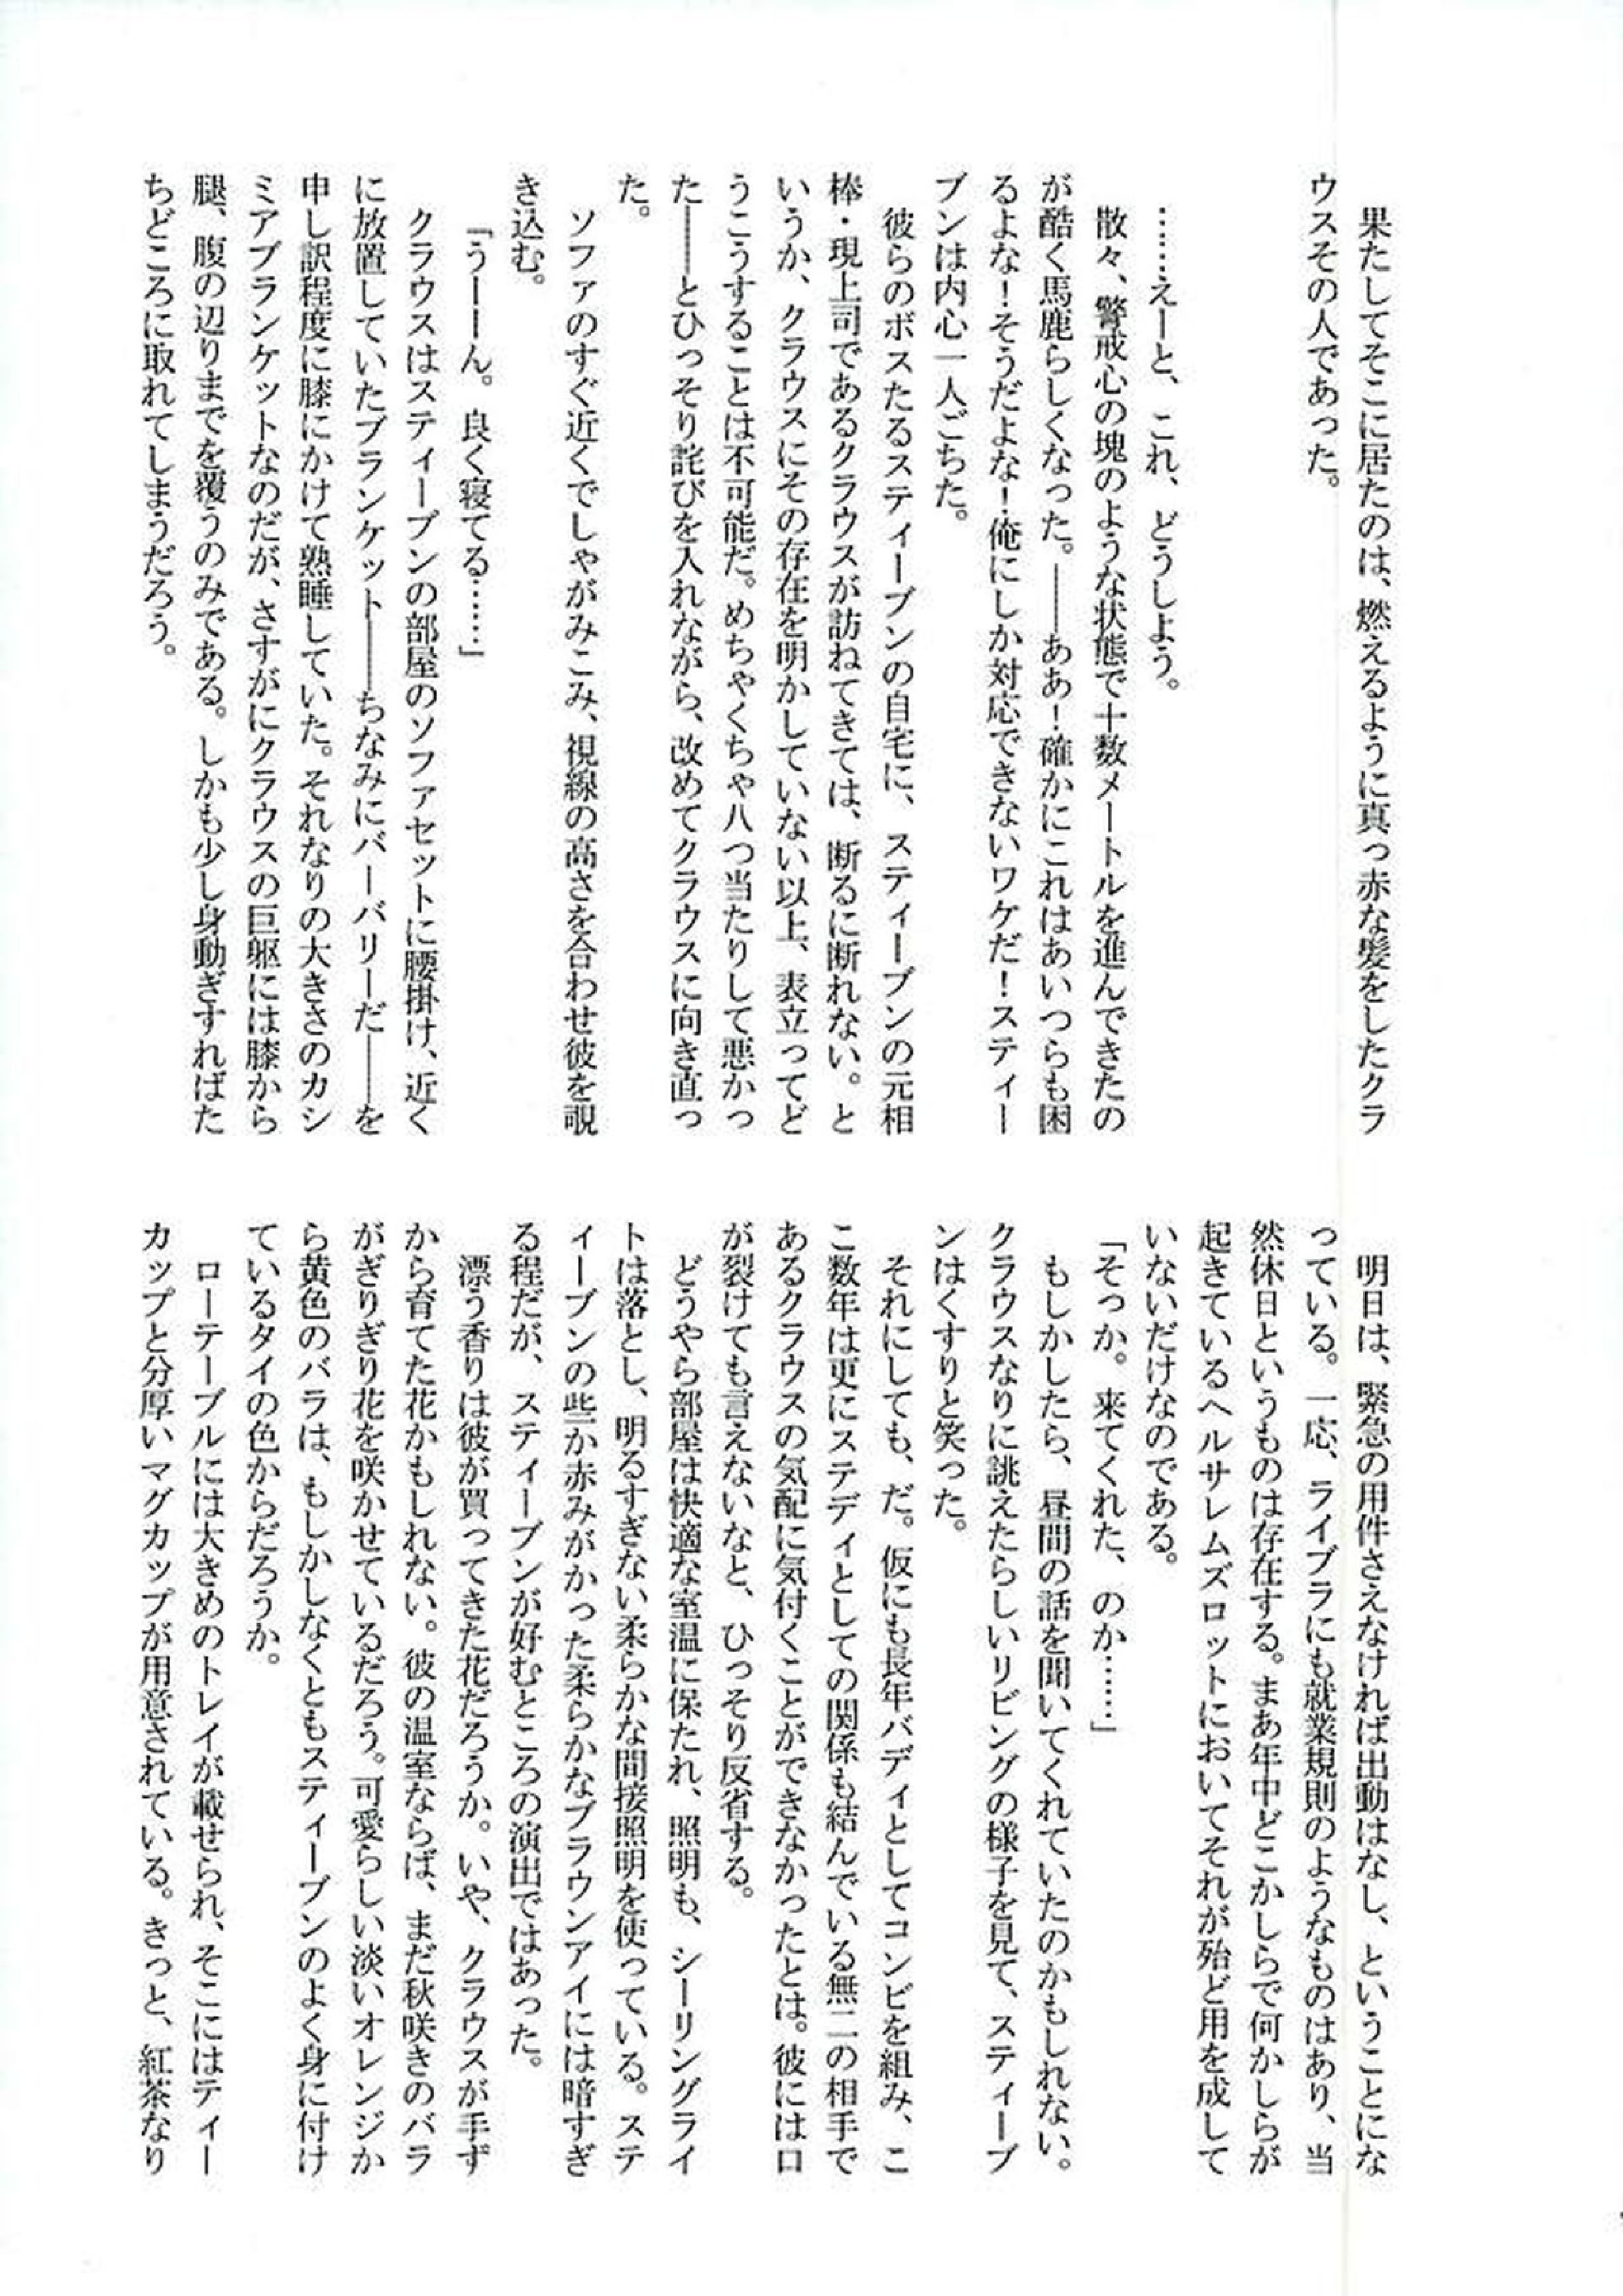 果たしてそこに居たのは、燃えるように真っ赤な髪をしたクラ
ウスその人であった。
　……えーと、これ、どうしよう。
　散々、警戒心の塊のような状態で十数メートルを進んできたの
が酷く馬鹿らしくなった。――ああ！確かにこれはあいつらも困
るよな！そうだよな！俺にしか対応できないワケだ！スティー
ブンは内心一人ごちた。
　彼らのボスたるスティーブンの自宅に、スティーブンの元相
棒・現上司であるクラウスが訪ねてきては、断るに断れない。と
いうか、クラウスにその存在を明かしていない以上、表立ってど
うこうすることは不可能だ。めちゃくちゃ八つ当たりして悪かっ
た――とひっそり詫びを入れながら、改めてクラウスに向き直っ
た。
　ソファのすぐ近くでしゃがみこみ、視線の高さを合わせ彼を覗
き込む。
「うーーん。良く寝てる……」
　クラウスはスティーブンの部屋のソファセットに腰掛け、近く
に放置していたブランケット――ちなみにバーバリーだ――を
申し訳程度に膝にかけて熟睡していた。それなりの大きさのカシ
ミアブランケットなのだが、さすがにクラウスの巨躯には膝から
腿、腹の辺りまでを覆うのみである。しかも少し身動ぎすればた
ちどころに取れてしまうだろう。
　明日は、緊急の用件さえなければ出動はなし、ということにな
っている。一応、ライブラにも就業規則のようなものはあり、当
然休日というものは存在する。まあ年中どこかしらで何かしらが
起きているヘルサレムズロットにおいてそれが殆ど用を成して
いないだけなのである。
「そっか。来てくれた、のか……」
　もしかしたら、昼間の話を聞いてくれていたのかもしれない。
クラウスなりに誂えたらしいリビングの様子を見て、スティーブ
ンはくすりと笑った。
　それにしても、だ。仮にも長年バディとしてコンビを組み、こ
こ数年は更にステディとしての関係も結んでいる無二の相手で
あるクラウスの気配に気付くことができなかったとは。彼には口
が裂けても言えないなと、ひっそり反省する。
　どうやら部屋は快適な室温に保たれ、照明も、シーリングライ
トは落とし、明るすぎない柔らかな間接照明を使っている。ステ
ィーブンの些か赤みがかった柔らかなブラウンアイには暗すぎ
る程だが、スティーブンが好むところの演出ではあった。
　漂う香りは彼が買ってきた花だろうか。いや、クラウスが手ず
から育てた花かもしれない。彼の温室ならば、まだ秋咲きのバラ
がぎりぎり花を咲かせているだろう。可愛らしい淡いオレンジか
ら黄色のバラは、もしかしなくともスティーブンのよく身に付け
ているタイの色からだろうか。
　ローテーブルには大きめのトレイが載せられ、そこにはティー
カップと分厚いマグカップが用意されている。きっと、紅茶なり